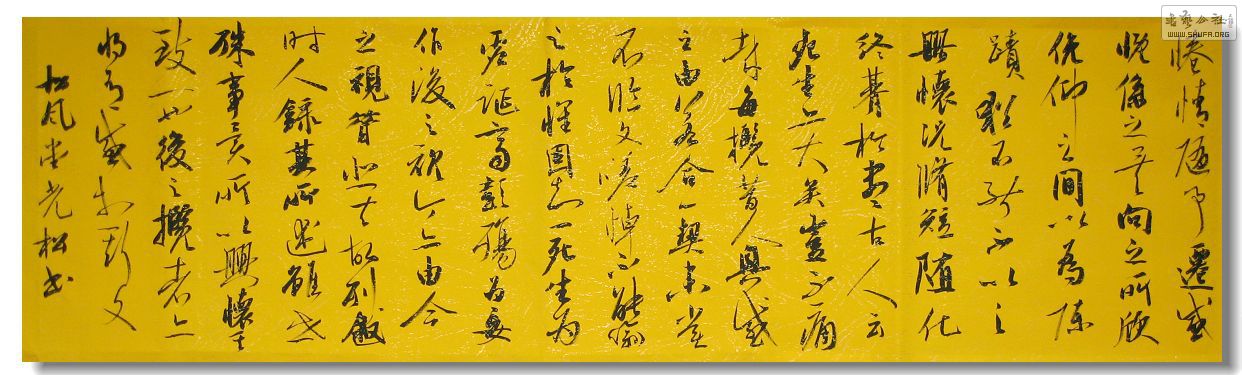 惓情随事遷感
慨係之矣向之所欣
俛仰之間以為陳
蹟猶不能不以之
興懷況脩短隨化
終朞於盡古人云
死生亦大矣豈不痛
哉每攬昔人興感
之由若合一契未嘗
不臨文嗟悼不能喻
之於懷固知一死生為
虛誕齊彭殤為妄
作後之視今亦由今
之視昔悲夫故列敘
時人錄其所述雖世
殊事異所以興懷其
致一也後之攬者亦
將有感於斯文
松风堂光松书
WWW.SHUFA.ORG